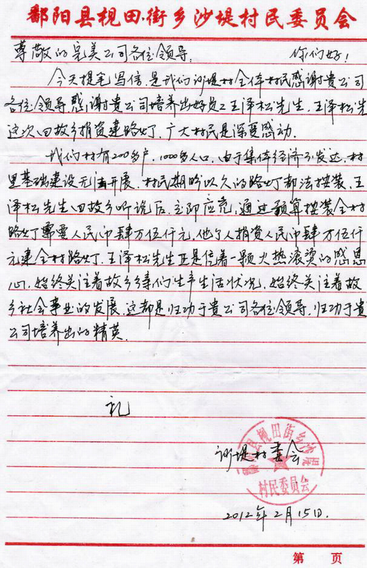 鄱阳县枧田街乡沙堤村民委员会
尊敬的完美公司各位领导,
你们好!
今天提笔写信,是我们沙堤村全体村民感谢贵公司
各位领导,感谢贵公司培养出好员工王泽松先生,王泽松先
这次回故乡捐资建路灯,广大村民是深受感动。
我们村有200多户,1000多人口,由于集体经济不发达,村
里基础建设无法开展,村民期盼以久的路灯都没按装,王
泽松先生回故乡听说后,立即应充,通过预算按装全村
路灯需要人民币肆万伍仟元,他个人捐资人民币肆万伍仟
元建全村路灯,王泽松先生正是住着一颗火热滚烫的感恩
心,始终关注着故乡乡亲们生产生活状况,始终关注着故
乡社会事业的发展,这都是归功于贵公司各位领导,归功于贵
公司培养出的精英.
礼
沙堤村委会
鄱阳县枧田街乡沙堤
村民委员会
2012年2月15日.
第 页